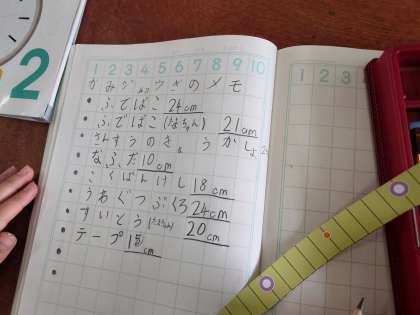 2
1 2 3 4 5 6 7 8 9 10
1 2 3
かみ ウさのメモ
・ ふでばこ 24cm
・ ふでばこ 21cm
・ さんすうのき うかしょ
・ なふだ 10cm
・ こくばんけし 18cm
・ うわぐつぶくろ 24cm
・ すいとう 20cm
・ テープ 15cm